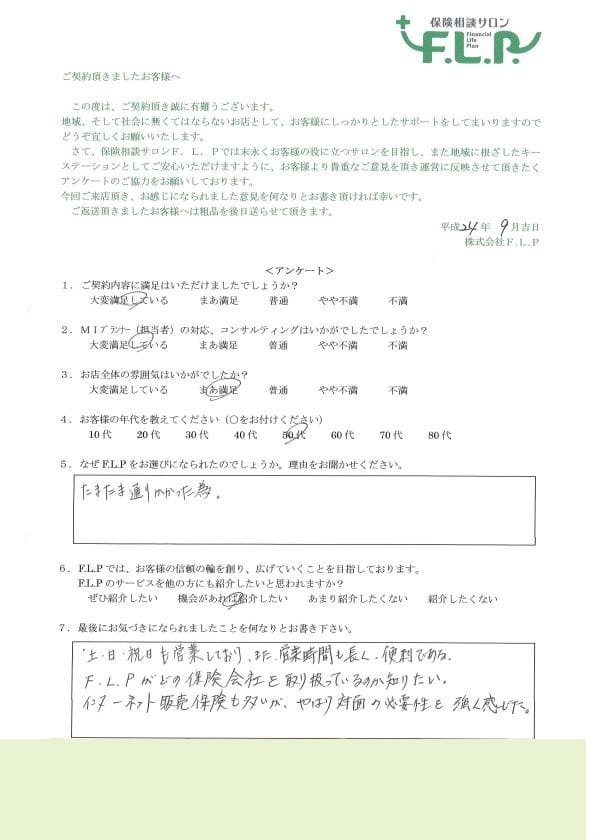 保険相談サロン
F.L.P.
Financial
Life
Plan
ご契約頂きましたお客様へ
この度は、ご契約頂き誠に有難うございます。
地域、そして社会に無くてはならないお店として、お客様にしっかりとしたサポートをしてまいりますので
どうぞ宜しくお願いいたします。
さて、保険相談サロンＦ．Ｌ．Ｐでは末永くお客様の役に立つサロンを目指し、また地域に根ざしたキー
ステーションとしてご安心いただけますように、お客様より貴重なご意見を頂き運営に反映させて頂きたく
アンケートのご協力をお願いしております。
今回ご来店頂き、お感じになられました意見を何なりとお書き頂ければ幸いです。
ご返送頂きましたお客様へは粗品を後日送らせて頂きます。
平成24年 9月吉日
株式会社Ｆ.Ｌ.Ｐ
＜アンケート＞
１．ご契約内容に満足はいただけましたでしょうか？
大変満足している まあ満足 普通 やや不満 不満
２．ＭＩﾌﾟﾗﾝﾅｰ（担当者）の対応、コンサルティングはいかがでしたでしょうか？
大変満足している まあ満足 普通 やや不満 不満
３．お店全体の雰囲気はいかがでしたか？
大変満足している まあ満足 普通 やや不満 不満
４．お客様の年代を教えてください（○をお付けください）
10代 20代 30代 40代 50代 60代 70代 80代
５．なぜF.L.Pをお選びになられたのでしょうか。理由をお聞かせください。
たまたま通りかかった為。
６．F.L.Pでは、お客様の信頼の輪を創り、広げていくことを目指しております。
F.L.Pのサービスを他の方にも紹介したいと思われますか？
ぜひ紹介したい 機会があれば紹介したい あまり紹介したくない 紹介したくない
７．最後にお気づきになられましたことを何なりとお書き下さい。
・土・日・祝日も営業しており、また、営業時間も長く、便利である。
F.L.Pがどの保険会社を取り扱っているのか知りたい。
インターネット販売保険も多いが、やはり対面の必要性を強く感じた。